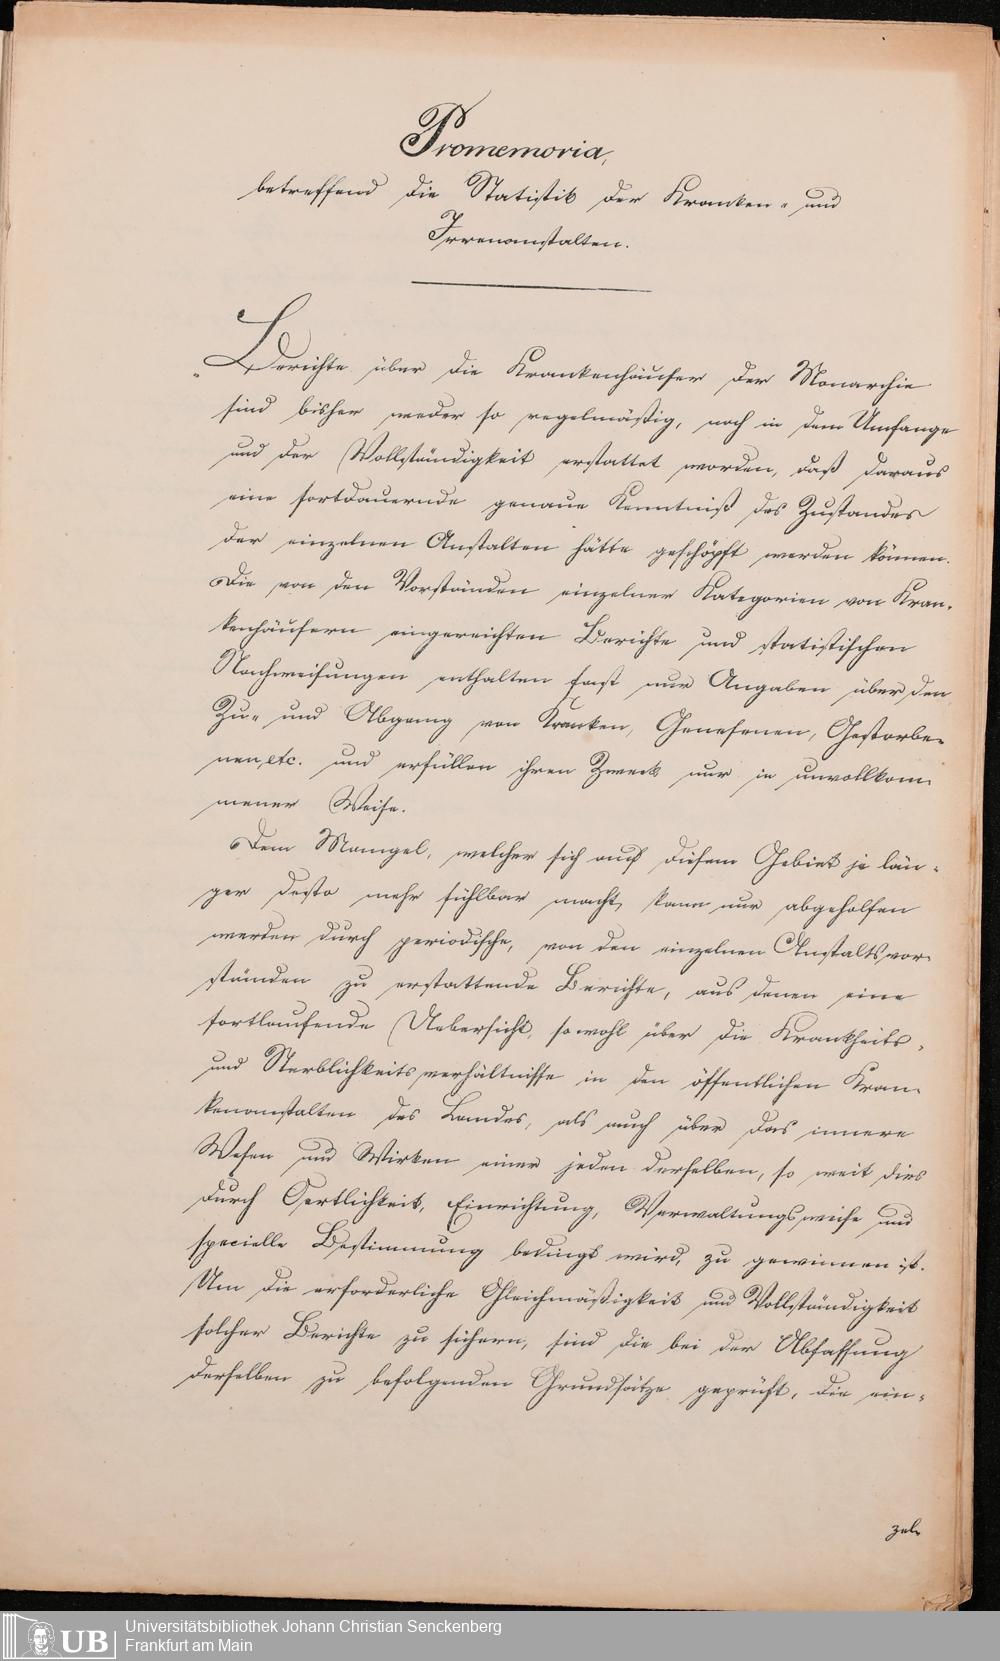 Promemoria,
betreffend die Statistik der Kranken- und
Irrenanstalten.
Berichte über die Krankenhäuser der Monarchie
sind bisher weder so regelmäßig, noch in dem Umfange
und der Vollständigkeit erstattet worden, daß daraus
eine fortdauernde genaue Kenntniß des Zustandes
der einzelnen Anstalten hätte geschöpft werden können.
Die von den Vorständen einzelner Kategorien von Kran-
kenhäusern eingereichten Berichte und statistischen
Nachweisungen enthalten fast nur Angaben über den
Zu- und Abgang von Kranken, Genesenen, Gestorbe-
nen, etc. und erfüllen ihren Zweck nur in unvollkom-
mener Weise.
Dem Mangel, welcher sich auf diesem Gebiet je län-
ger desto mehr fühlbar macht, kann nur abgeholfen
werden durch periodische, von den einzelnen Anstaltsvor-
ständen zu erstattende Berichte, aus denen eine
fortlaufende Uebersicht, sowohl über die Krankheits-
und Sterblichkeitsverhältnisse in den öffentlichen Kran-
kenanstalten des Landes, als auch über das innere
Wesen und Wirken einer jeden derselben, so weit dies
durch Oertlichkeit, Einrichtung, Verwaltungsweise und
specielle Bestimmung bedingt wird, zu gewinnen ist.
Um die erforderliche Gleichmäßigkeit und Vollständigkeit
solcher Berichte zu sichern, sind die bei der Abfassung
derselben zu befolgenden Grundsätze geprüft, die ein-
zel-
UB
Universitätsbibliothek Johann Christian Senckenberg
Frankfurt am Main